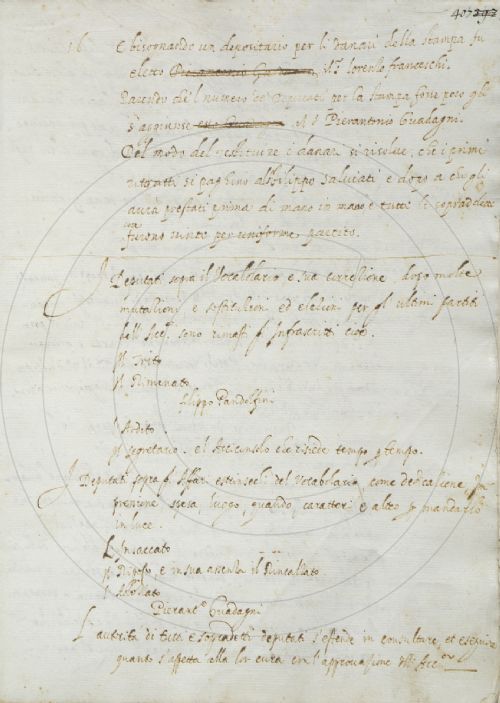 407 393
16. E bisognando un depositario per li danari della stampa fu
eletto Pierantonio Guadagni il S. Lorenzo Franceschi.
Parendo che 'l numero de Deputati per la stampa fosse poco gli
s'aggiunse Guadagni. Il S. Pierantonio Guadagni.
Del modo del restituire i danari si risolve, che i primi
ritratti si paghino a Filippo Salviati e dopo a chi gli
avrà prestati prima di mano in mano e tutti li sopraddetti
furono vinti per uniforme partito.
I Deputati sopra il Vocabolario e sua correzione dopo molte
mutazioni e sostituzioni ed elezioni per gl' ultimi partiti
dell' Acc. sono rimasti gl' Infrascritti cioè.
Il Trito
Il Rimenato
Filippo Pandolfini
L'Ardito.
Il Segretario. e l'Arciconsolo che risiede tempo per tempo.
I Deputati sopra gl' Affari estrinsechi del Vocabolario come dedicazione
spesa luogo, quando, caratteri e altro per mandarlo
in luce.
L'Insaccato
Il Ripieno, e in sua assenza il Rincallato
Pierant.o Guadagni
L'autorità di tutti e sopradetti deputati s'estende in consultare, et eseguire
quanto s'aspetta alla lor cura con l'approvazione dell' Acc.